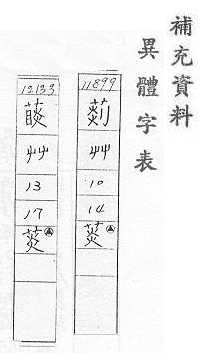 補充資料
異體字表
11899
艸
10
14
菼
12133
艸
13
17
菼